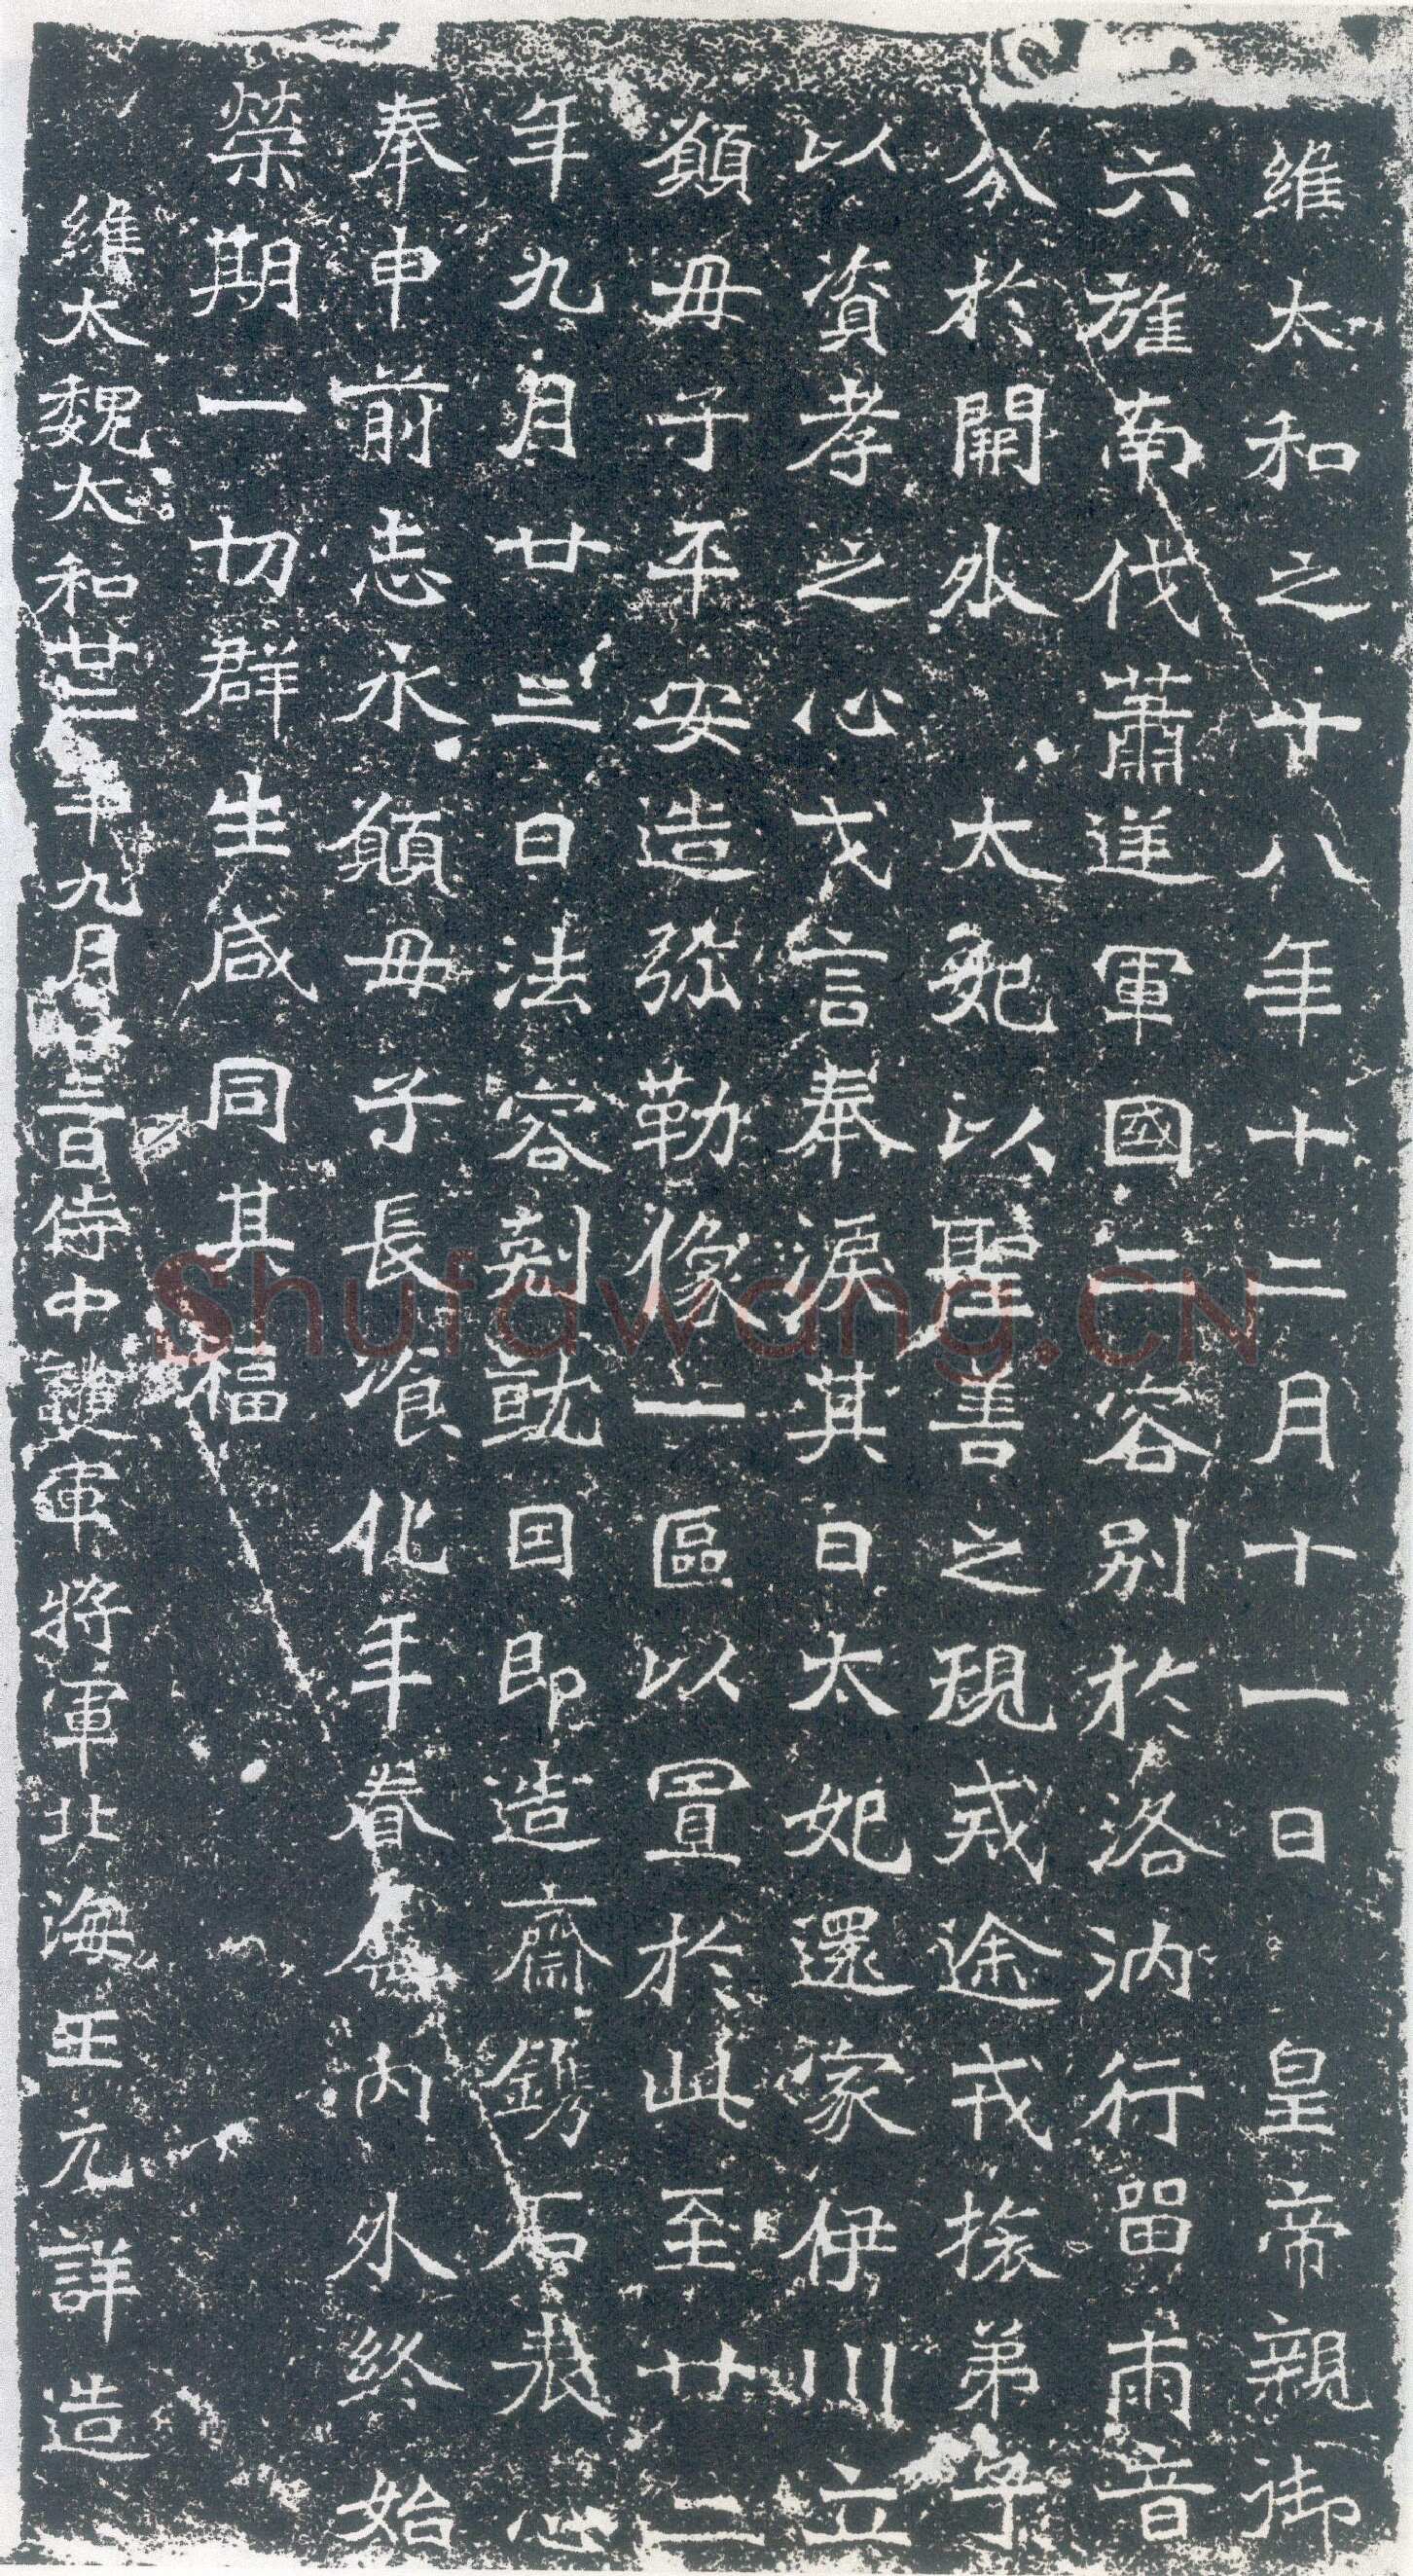 維太和之十八年十二月十一日皇帝親御
六旌南伐蕭逆軍國二容別於洛汭行留兩音
分於關外太妃以聖善之規戒途戎旅弟子
以資孝之心戈言奉淚其日太妃還家伊川立
願母子平安造弥勒像一區以置於此至廿二
年九月廿三日法容剋就因即造齋鐫石表心
奉申前志永願母子長飡化年眷屬內外終始
榮期一切群生咸同其福
維太魏太和廿二年九月廿三日侍中護軍將軍北海王元詳造
Shufawang.CN